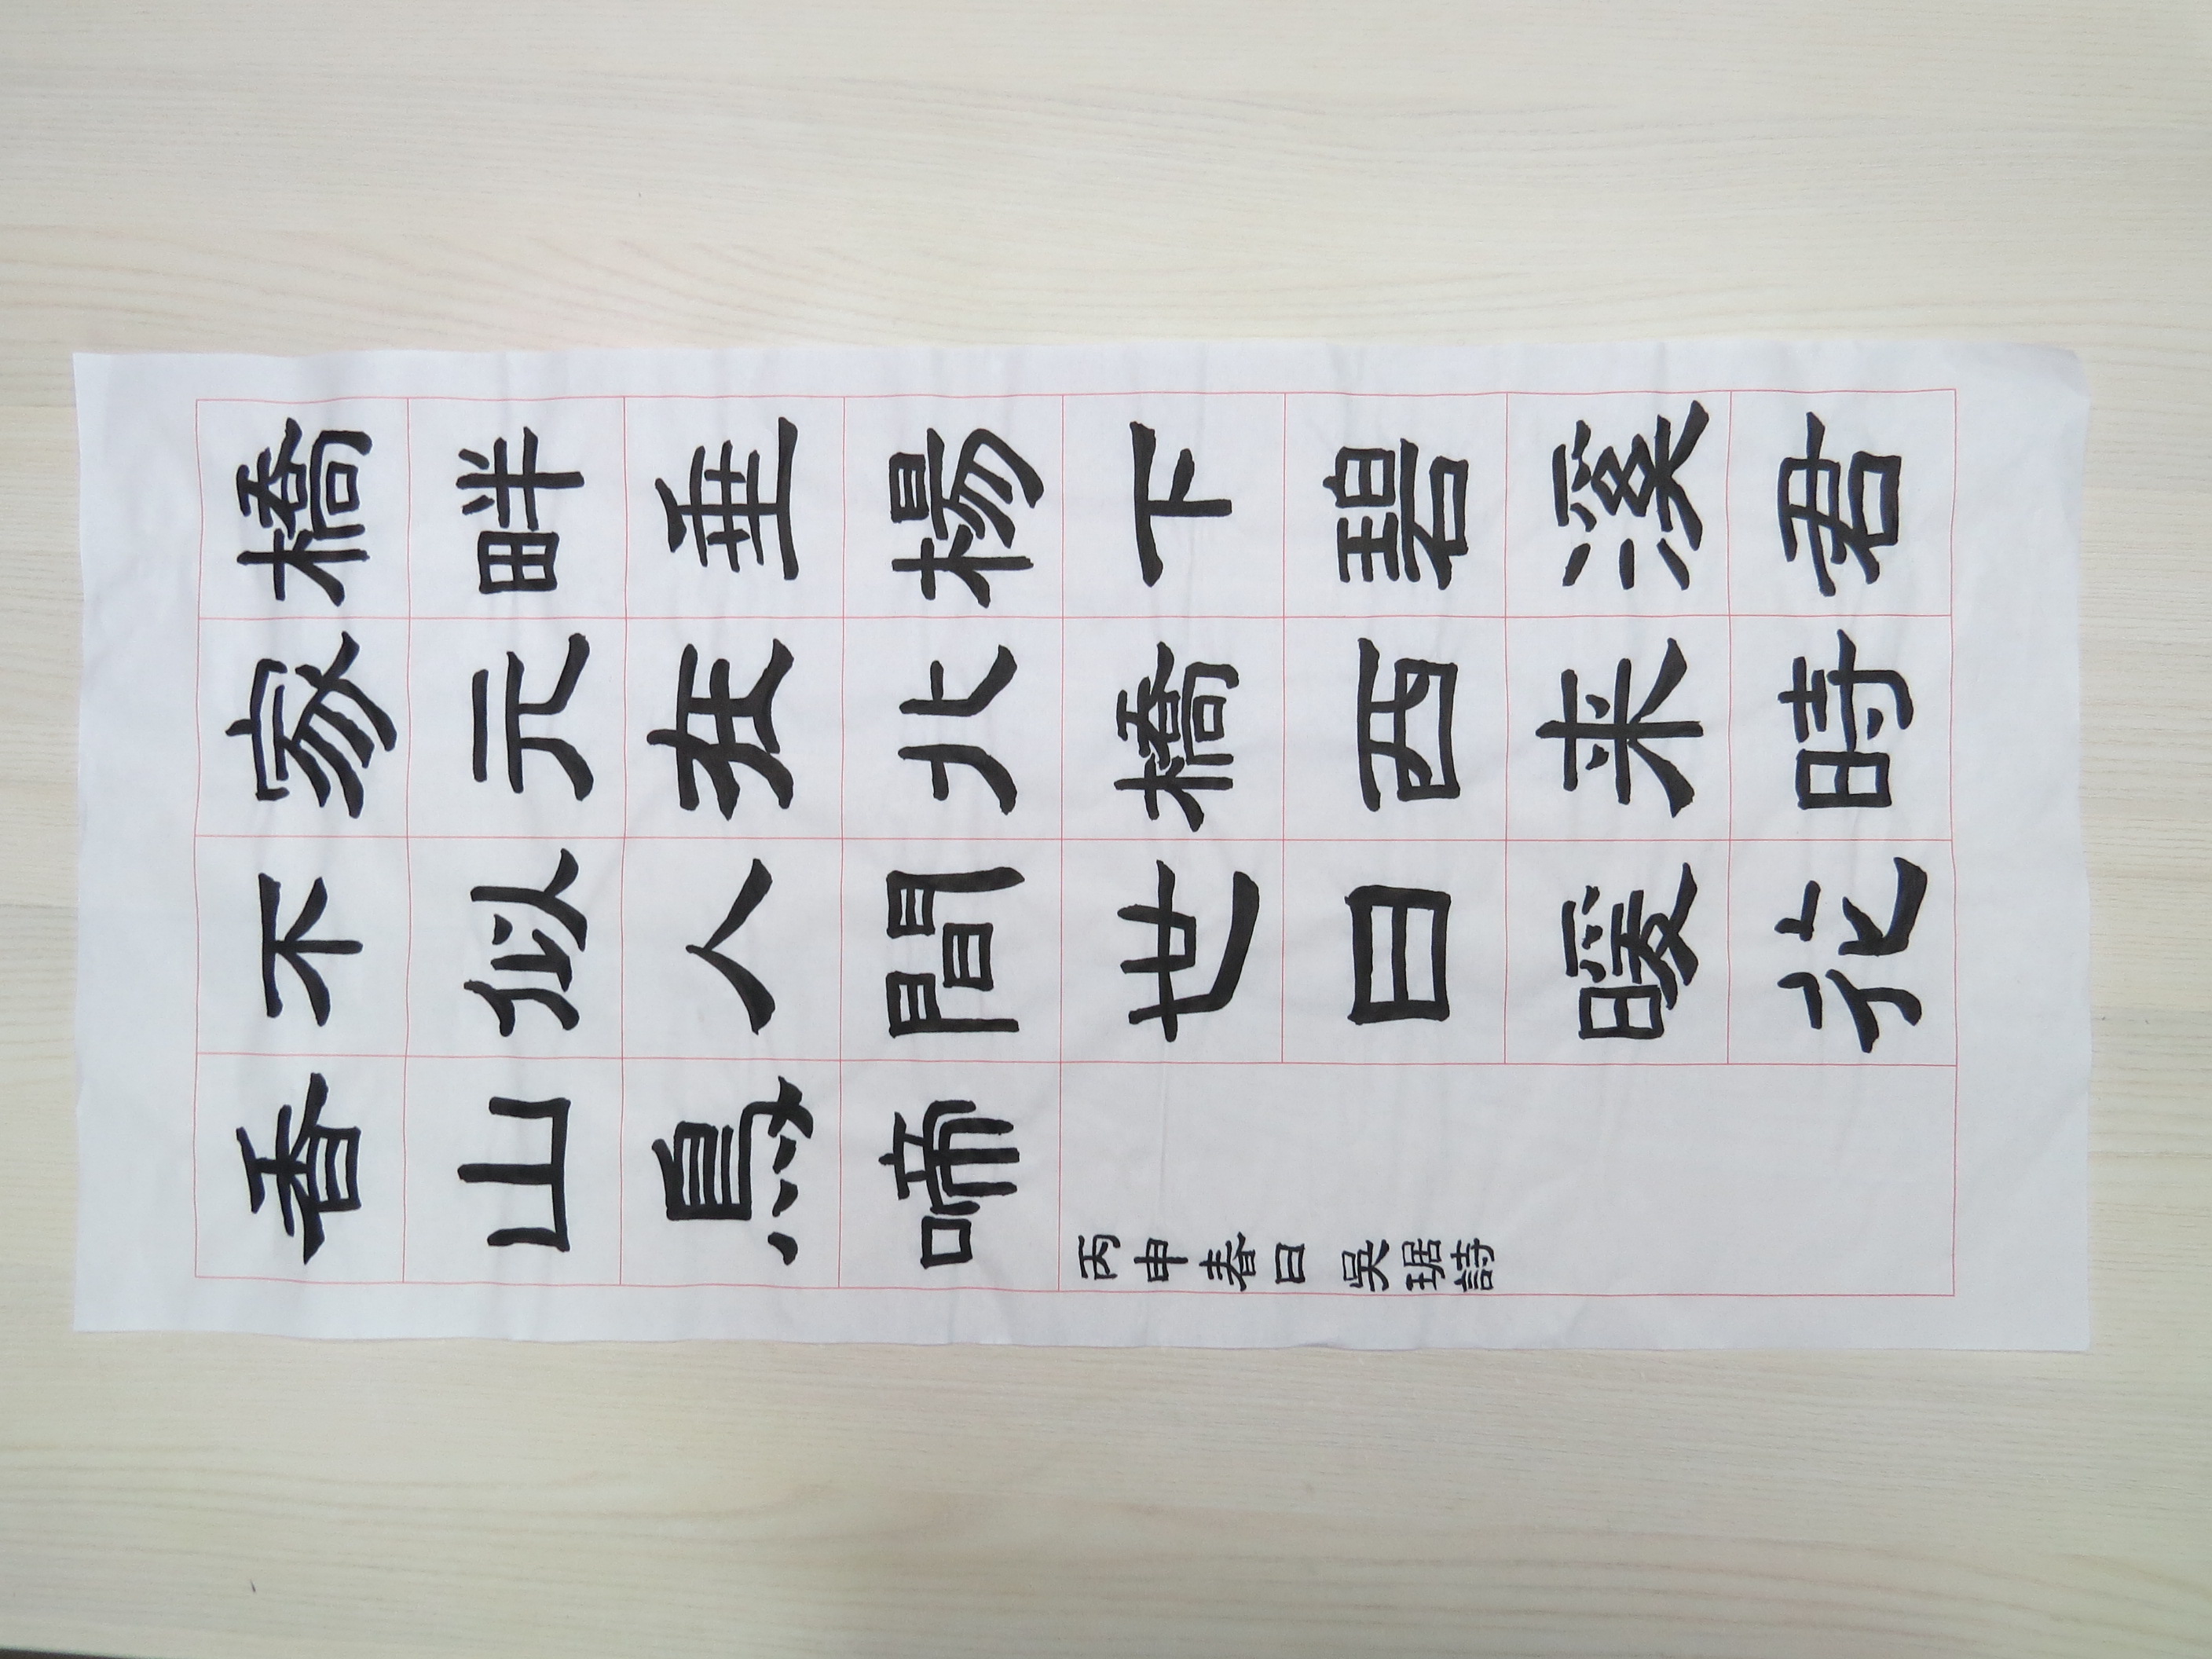 橋畔垂楊下碧溪君
家元在北橋西来時
不似人間世日暖花
香山鳥啼
丙申春日 吳琚詩